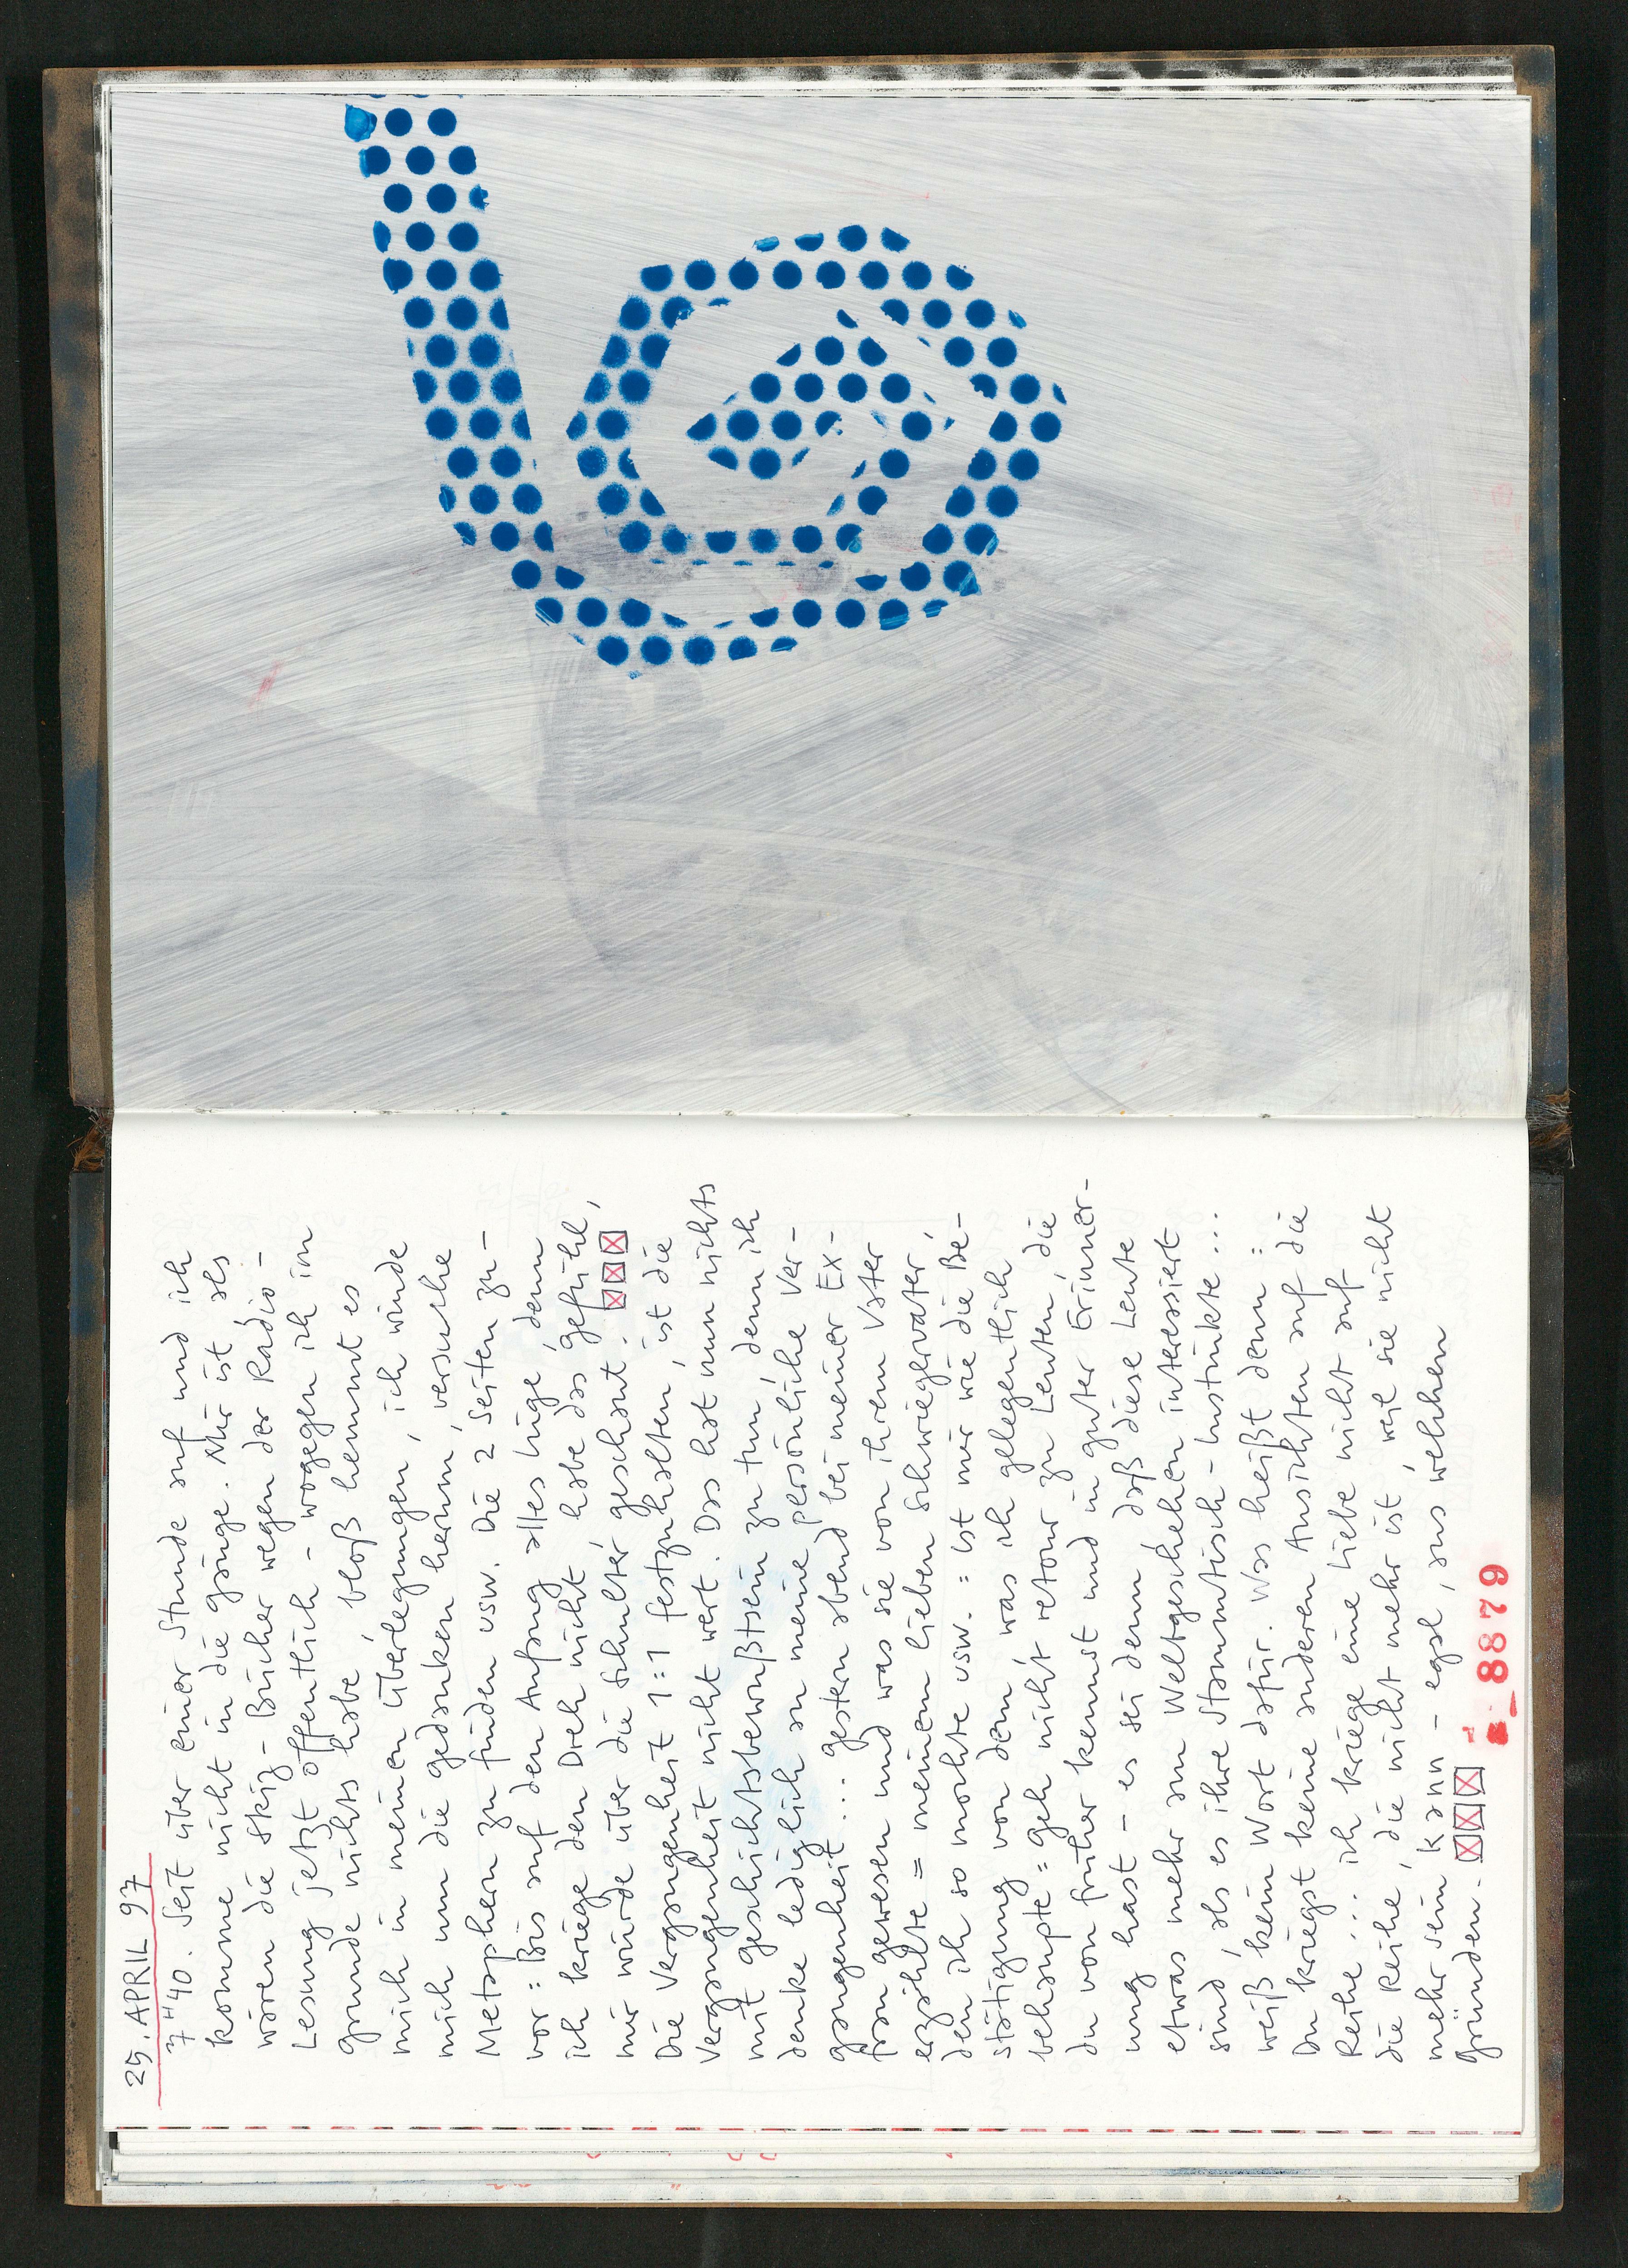 25. APRIL 97
7"40. Seit über einer Stunde auf und ich
komme nicht in die gänge. Mir ist als
wären die Skiz-Bücher wegen der Radio-
Lesung jetzt öffentlich - wogegen ich im
grunde nichts habe, bloß hemmt es
mich in meinen Überlegungen, ich winde
mich um die gedanken herum, versuche
Metaphern zu finden usw. Die 2 Seiten zu-
vor: Bis auf den Anfang alles Lüge, denn
ich kriege den Dreh nicht, habe das gefühl,
mir würde über die Schulter geschaut.
Die Vergangenheit 1:1 festzuhalten, ist die
Vergangenheit nicht wert. Das hat nun nichts
mit geschichtsbewußtsein zu tun, denn ich
denke lediglich an meine persönliche Ver-
gangenheit... gestern abend bei meiner Ex-
frau gewesen und was sie von ihrem Vater
erzählte = meinem lieben Schwiegervater,
den ich so mochte usw. = ist mir wie die Be-
stätigung von dem, was ich gelegentlich
behaupte = geh nicht retour zu Leuten, die
du von früher kennst und in guter Erinner-
ung hast - es sei denn, daß diese Leute
etwas mehr am Weltgeschehen interessiert
sind, als es ihre Stammtisch-Instinkte...
weiß kein Wort dafür. Was heißt denn:
Du kriegst keine anderen Ansichten auf die
Reihe... ich kriege eine Liebe nicht auf
die Reihe, die nicht mehr ist, weil sie nicht
mehr sein kann - egal, aus welchen
gründen.
8879